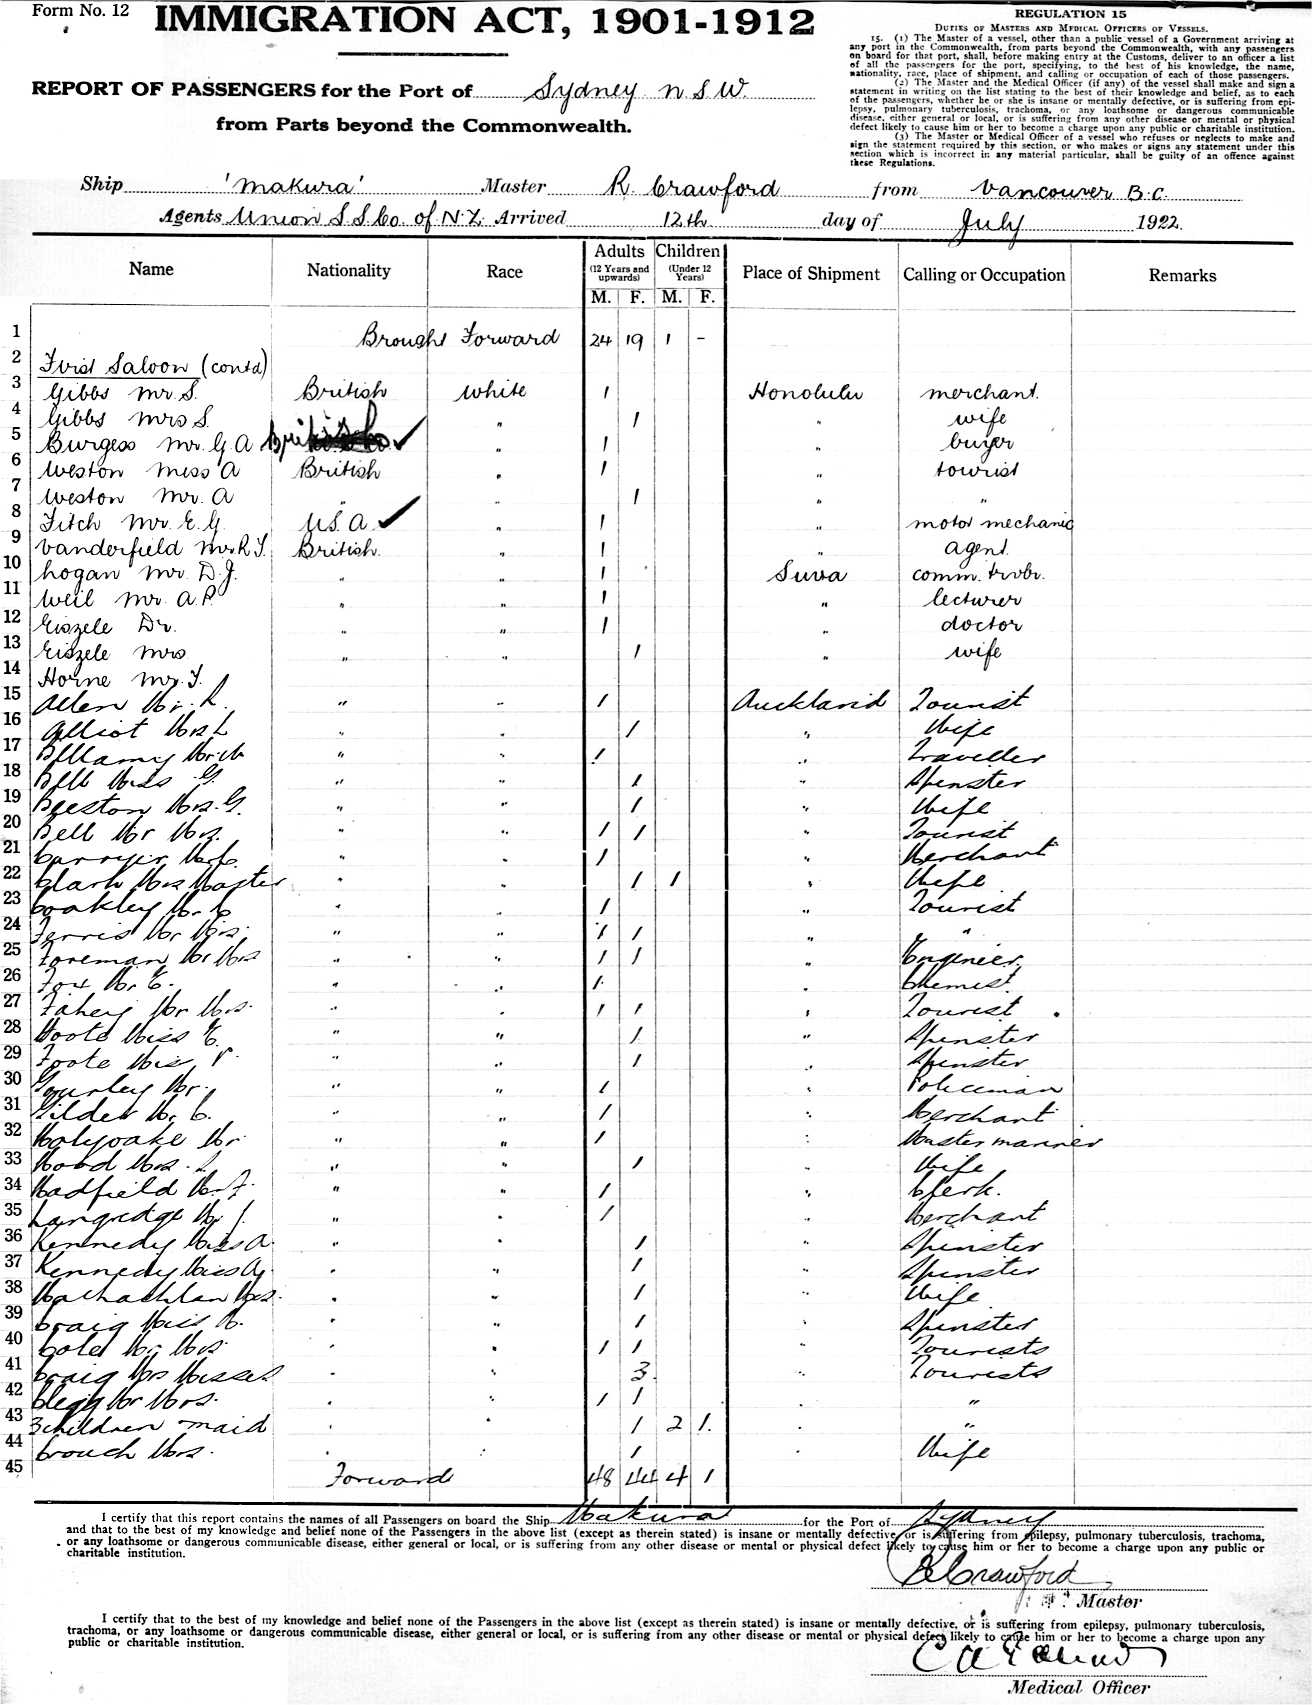 Form No. 12
IMMIGRATION ACT, 1901-1912
REGULATION 15
DUTIES OF MASTERS AND MEDICAL OFFICERS OF VESSELS.
15. (1) The Master of a vessel, other than a public vessel of a Government arriving at
any port in the Commonwealth, from parts beyond the Commonwealth, with any passengers
on board for that port, shall, before making entry at the Customs, deliver to an officer a list
of all the passengers for the port, specifying, to the best of his knowledge, the name,
nationality, race, place of shipment, and calling or occupation of each of those passengers.
(2) The Master and the Medical Officer (if any) of the vessel shall make and sign a
statement in writing on the list stating to the best of their knowledge and belief, as to each
of the passengers, whether he or she is insane or mentally defective, or is suffering from epi-
lepsy, pulmonary tuberculosis, trachoma, or any loathsome or dangerous communicable
disease, either general or local, or is suffering from any other disease or mental or physical
defect likely to cause him or her to become a charge upon any public or charitable institution.
(3) The Master or Medical Officer of a vessel who refuses or neglects to make and
sign the statement required by this section, or who makes or signs any statement under this
section which is incorrect in any material particular, shall be guilty of an offence against
these Regulations.
REPORT OF PASSENGERS for the Port of Sydney N S W.
from Parts beyond the Commonwealth.
Ship 'Makura' Master R. Crawford from Vancouver B.C.
Agents Union S.S.Co. of N.Z. Arrived 12th day of July 1922.
Name Nationality Race Adults (12 Years and upwards) M. F. Children (Under 12 Years) M. F. Place of Shipment Calling or Occupation Remarks
1 Brought Forward 24 19 1 -
2 First Saloon (contd)
3 Gibbs Mr S. British White 1 Honolulu merchant.
4 Gibbs Mrs S. " 1 " wife
5 Burgess Mr. G A British " 1 " buyer
6 Weston Miss A British " 1 " tourist
7 Weston Mr. A " " 1 " "
8 Fitch Mr. E. G. U.S.A. " 1 " motor mechanic
9 Vanderfield Mr R J. British. " 1 " agent.
10 Hogan Mr. D. J. " " 1 Suva comm. trvlr.
11 Weil Mr. A. P. " " 1 " lecturer
12 Eiszele Dr. " " 1 " doctor
13 Eiszele Mrs " " 1 " wife
14 Horne Mr. J.
15 Allen Mr. R. " " 1 Auckland Tourist
16 Elliot Mrs L " " 1 " Wife
17 Bellamy Mr W " " 1 " Traveller
18 Bell Miss G. " " 1 " Spinster
19 Beeston Mrs. G. " " 1 " Wife
20 Bell Mr Mrs. " " 1 1 " Tourist
21 Carryer Mr C. " " 1 " Merchant
22 Clark Mrs Master " " 1 1 " Wife
23 Coakley Mr C " " 1 " Tourist
24 Ferris Mr Mrs. " " 1 1 " "
25 Foreman Mr Mrs " " 1 1 " Engineer
26 Fox Mr. E. " " 1 " Chemist
27 Fahey Mr Mrs. " " 1 1 " Tourist
28 Foote Miss E. " " 1 " Spinster
29 Foote Miss V. " " 1 " Spinster
30 Gourley Mr. " " 1 " Policeman
31 Gilder Mr. C. " " 1 " Merchant
32 Holyoake Mr " " 1 " Master mariner
33 Hood Mrs. " " 1 " Wife
34 Hadfield Mr. F. " " 1 " Clerk.
35 Langridge Mr J. " " 1 " Merchant
36 Kennedy Miss A. " " 1 " Spinster
37 Kennedy Miss Ag. " " 1 " Spinster
38 MacLachlan Mrs. " " 1 " Wife
39 Craig Miss " " 1 " Spinster
40 Cole Mr. Mrs " " 1 1 " Tourists
41 Craig Mrs Misses " " 3 " Tourists
42 Clegg Mr Mrs. " " 1 1 "
43 3 children maid " " 1 2 1 " "
44 Crouch Mrs. " " 1 Wife
45 Forward 48 44 4 1
I certify that this report contains the names of all Passengers on board the Ship Makura for the Port of Sydney
and that to the best of my knowledge and belief none of the Passengers in the above list (except as therein stated) is insane or mentally defective or is suffering from epilepsy, pulmonary tuberculosis, trachoma,
or any loathsome or dangerous communicable disease, either general or local, or is suffering from any other disease or mental or physical defect likely to cause him or her to become a charge upon any public or
charitable institution.
R Crawford
Master
I certify that to the best of my knowledge and belief none of the Passengers in the above list (except as therein stated) is insane or mentally defective, or is suffering from epilepsy, pulmonary tuberculosis,
trachoma, or any loathsome or dangerous communicable disease, either general or local, or is suffering from any other disease or mental or physical defect likely to cause him or her to become a charge upon any
public or charitable institution.
Medical Officer